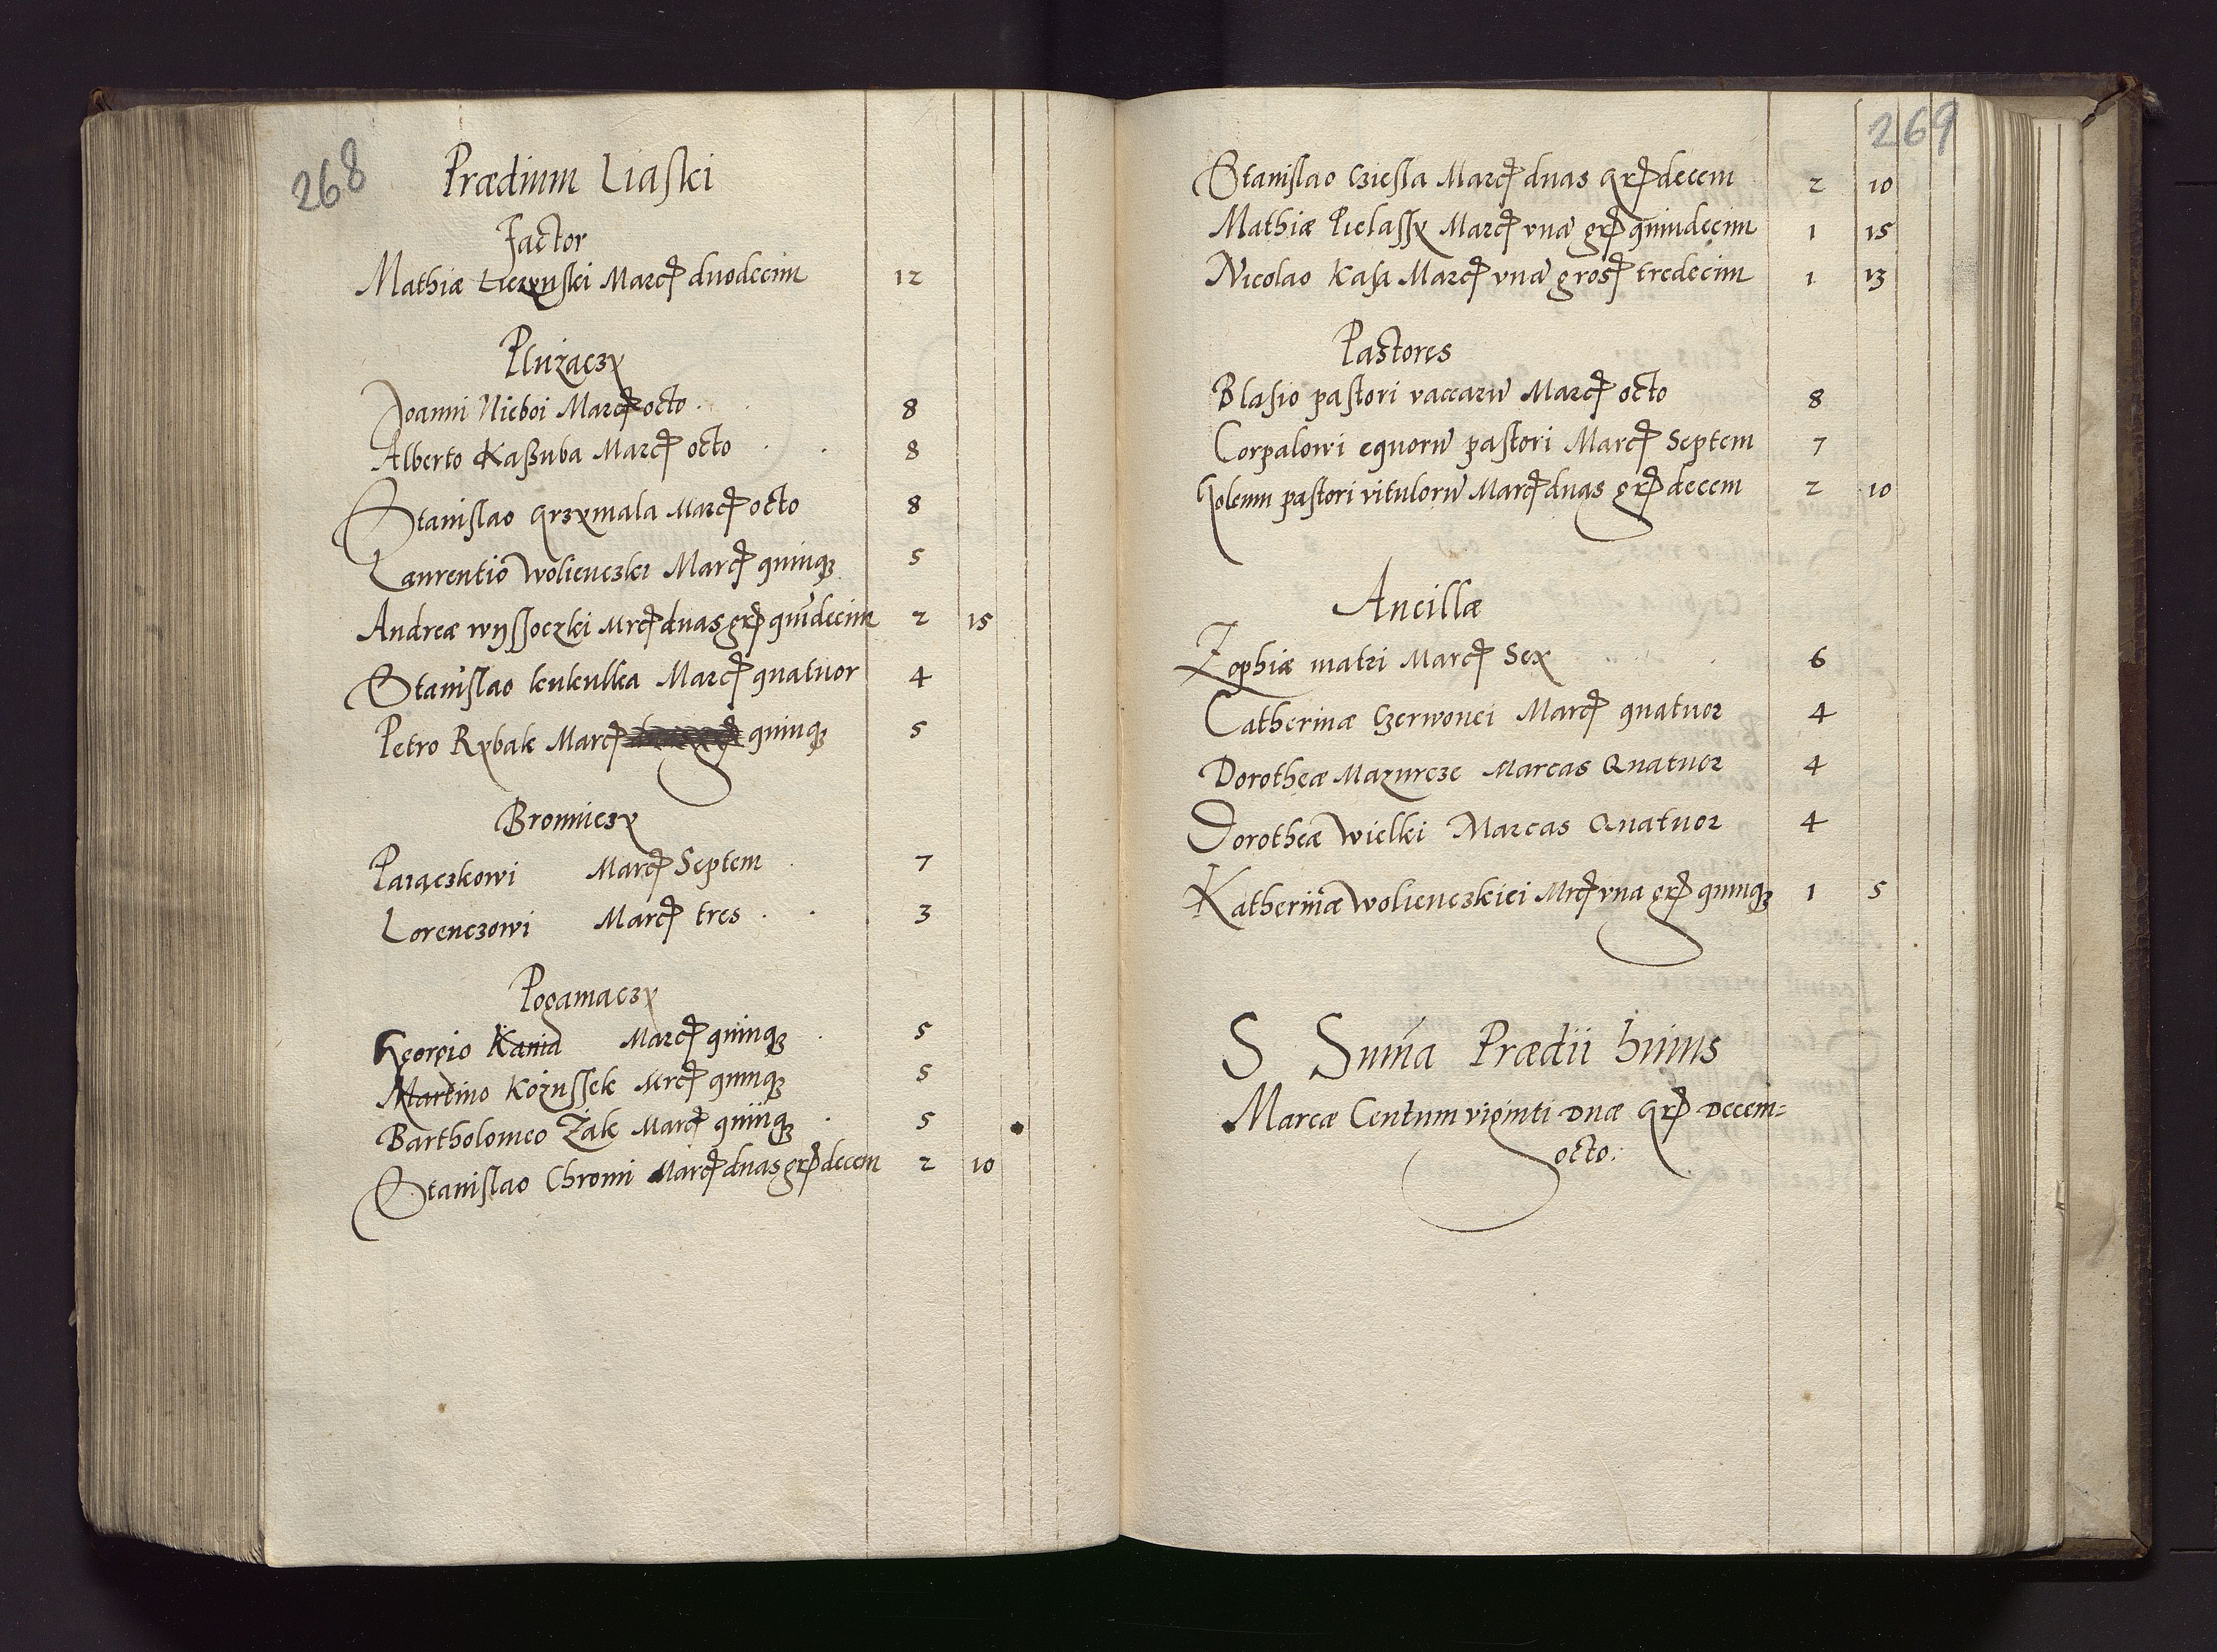 268
Prædium Liaski
Factor
Mathiæ Liczynski Marcꝭ duodecim 12
Pluzaczy
Joanni Nieboi Marcꝭ octo 8
Alberto Kaßuba Marcꝭ octo 8
Stanislao Grzymala Marcꝭ octo 8
Laurentio Wolieuczki Marcꝭ quinqꝫ 5
Andreæ wyssoczki Mrcꝭ duas grꝭ quĩdecim 2 15
Stanislao kukulka Marcꝭ quatuor 4
Petro Rybak Marcꝭ quinqꝫ 5
Bronniczy
Parączkowi Marcꝭ Septem 7
Lorenczowi Marcꝭ tres 3
Poganiaczy
Georgio Kania Marcꝭ quinqꝫ 5
Martino Kożussek Mrcꝭ quinqꝫ 5
Bartholomeo Żak Marcꝭ quinqꝫ 5
Stanislao Chromi Marcꝭ duas grꝭ decem 2 10
269
Stanislao Cziesla Marcꝭ duas Grꝭ decem 2 10
Mathiæ Pielassy Marcꝭ vnã grꝭ quindecim 1 15
Nicolao Kasa Marcꝭ vnã grosꝭ tredecim 1 13
Pastores
Blasio pastori vaccarũ Marcꝭ octo 8
Corpalowi equorũ pastori Marcꝭ Septem 7
Golemu pastori vitulorũ Marcꝭ duas grꝭ decem 2 10
Ancillæ
Zophiæ matri Marcꝭ Sex 6
Catherinæ Czerwonei Marcꝭ quatuor 4
Dorotheæ Mazurcze Marcas Quatuor 4
Dorotheæ Wielki Marcas Quatuor 4
Katherinæ Wolieuczkiei Mrcꝭ vna grꝭ quinqꝫ 1 5
S Sum̃a Prædii huius
Marcæ Centum viginti duæ Grꝭ decem=
octo: